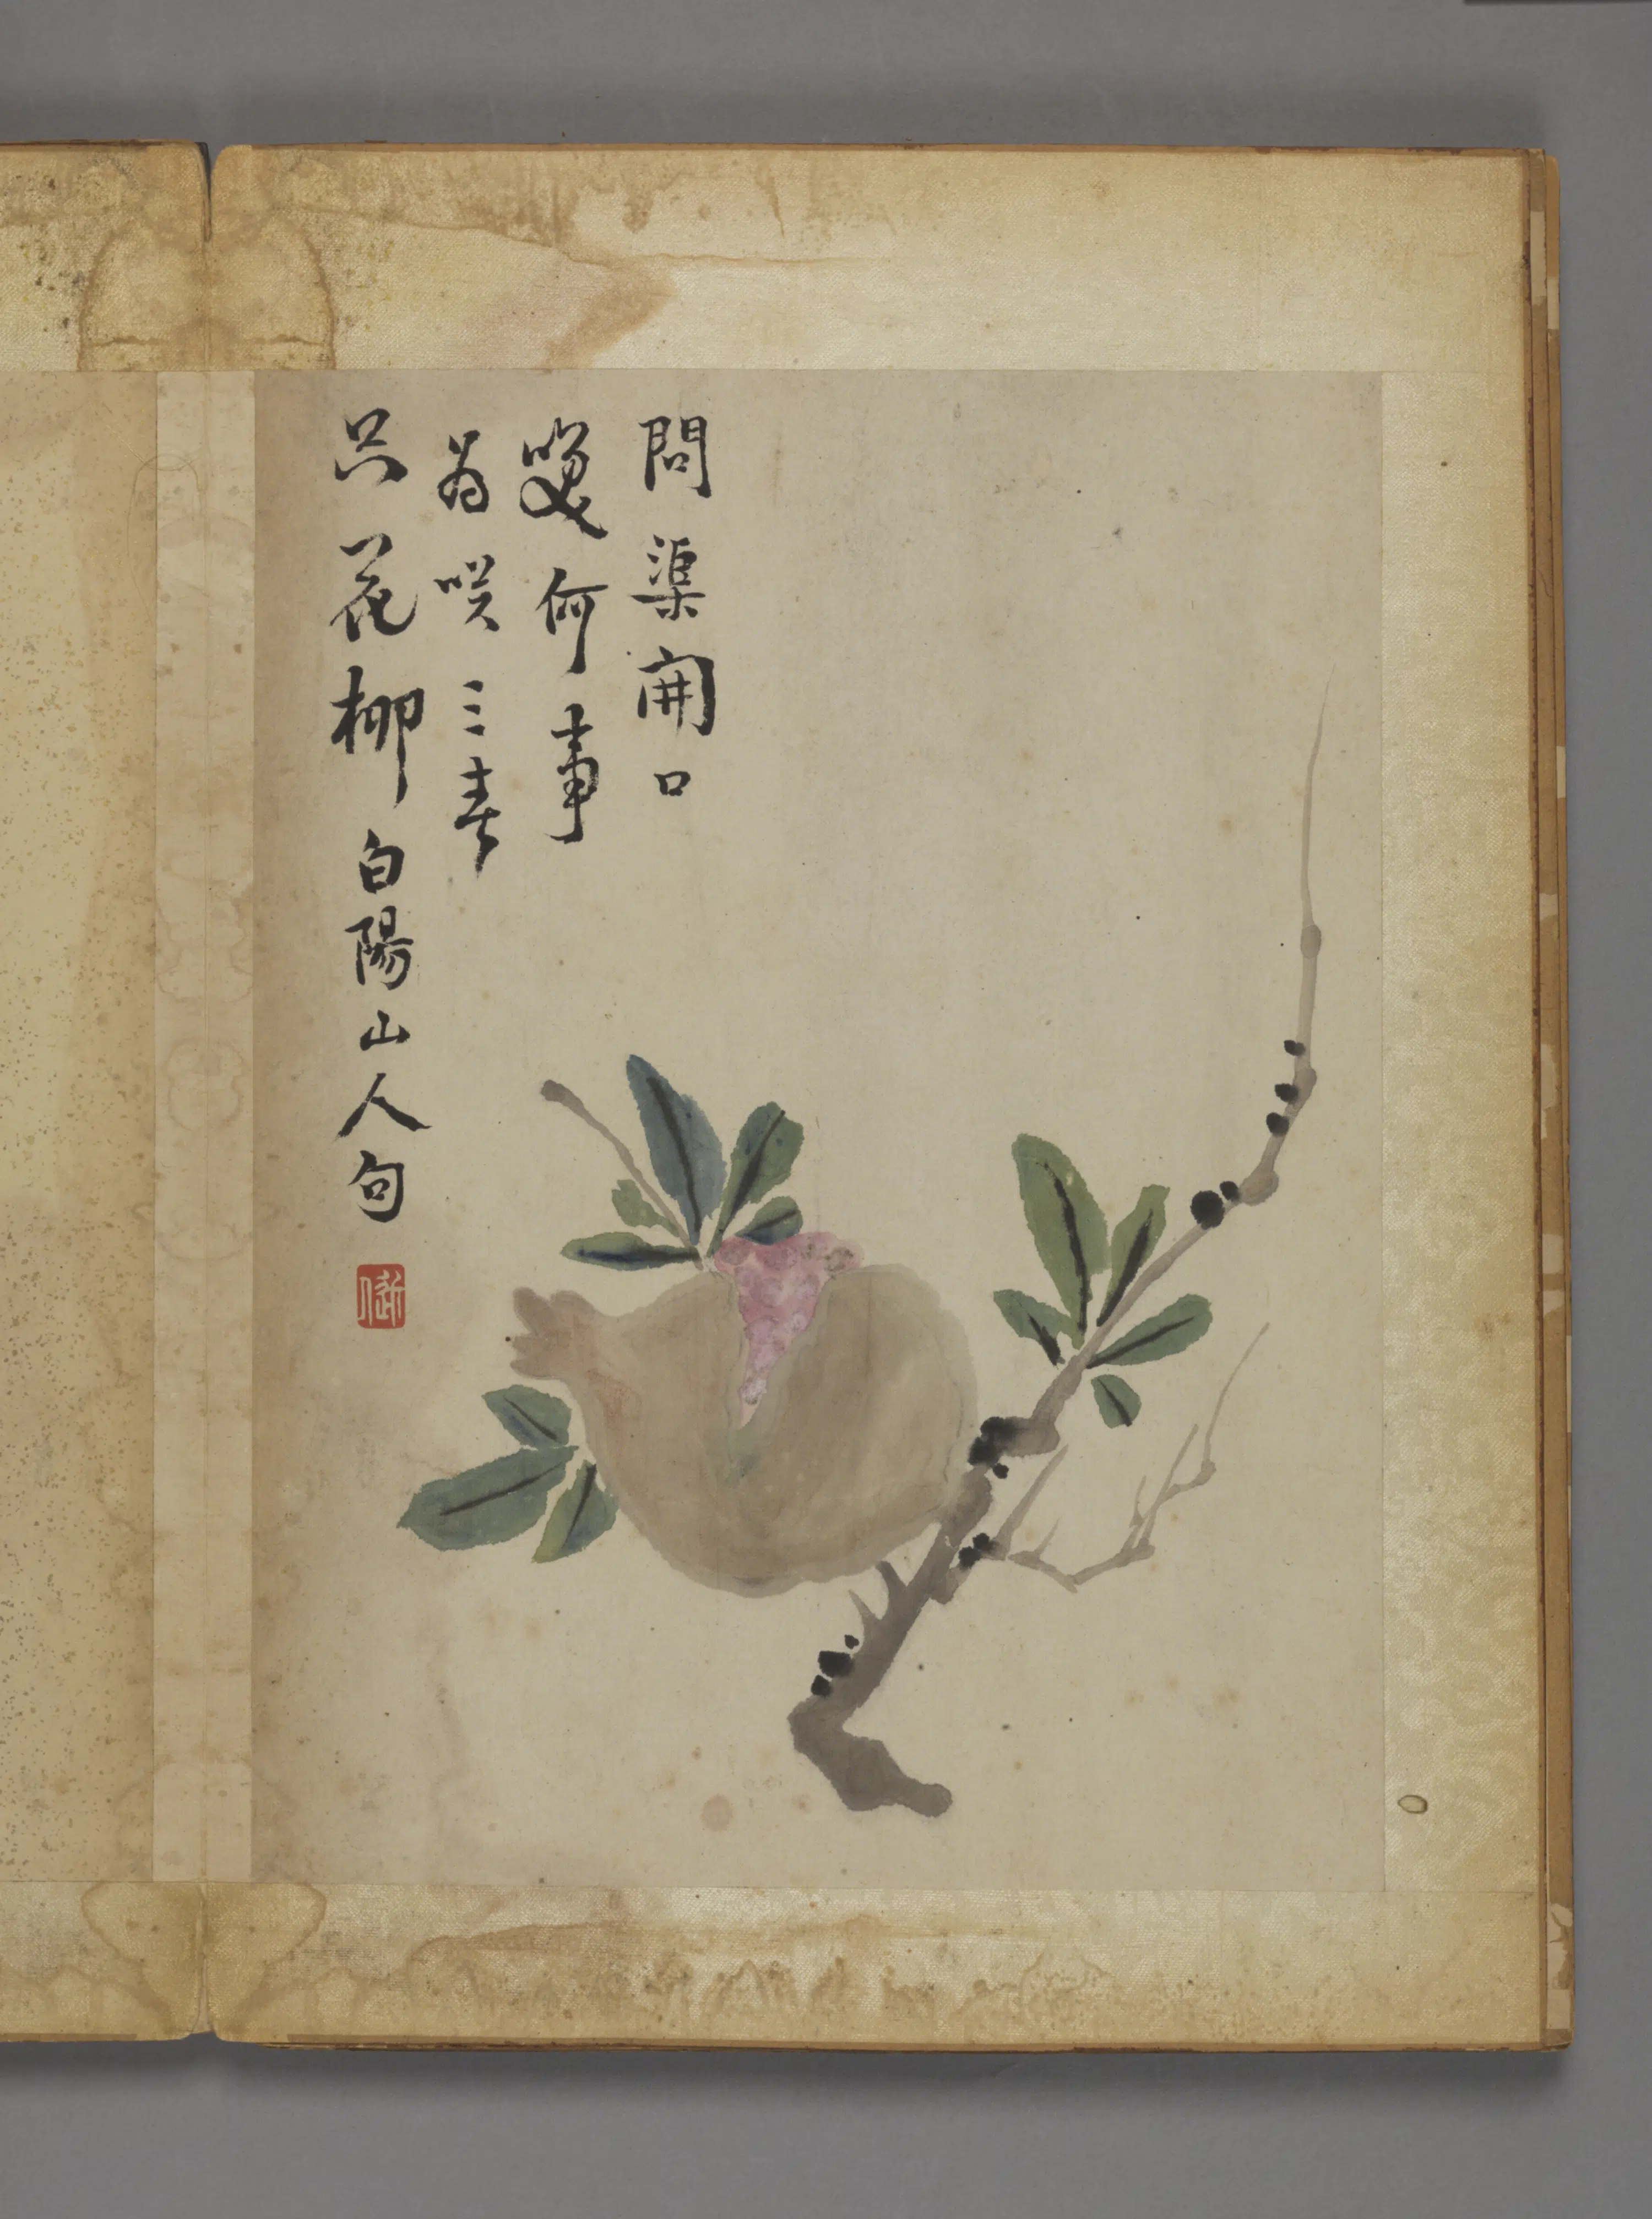 問渠開口
何事
為咲三春
只花柳 白陽山人句